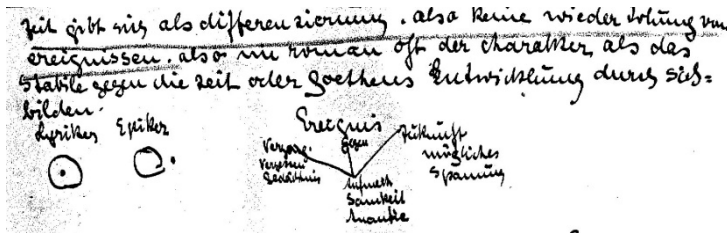 Zeit gibt uns als differenzierung. also keine wiederholung von
ereignissen. also im roman oft der charakter als das
Stabile gegen die zeit oder Goethens Entwicklung durch sich=
bilden.
Lyriker Epiker
Ereignis
Vergang. Gegen Zukunft
Vergessen mögliches
Gedächtnis Spannung
Aufmerk
Samkeit
Ananke